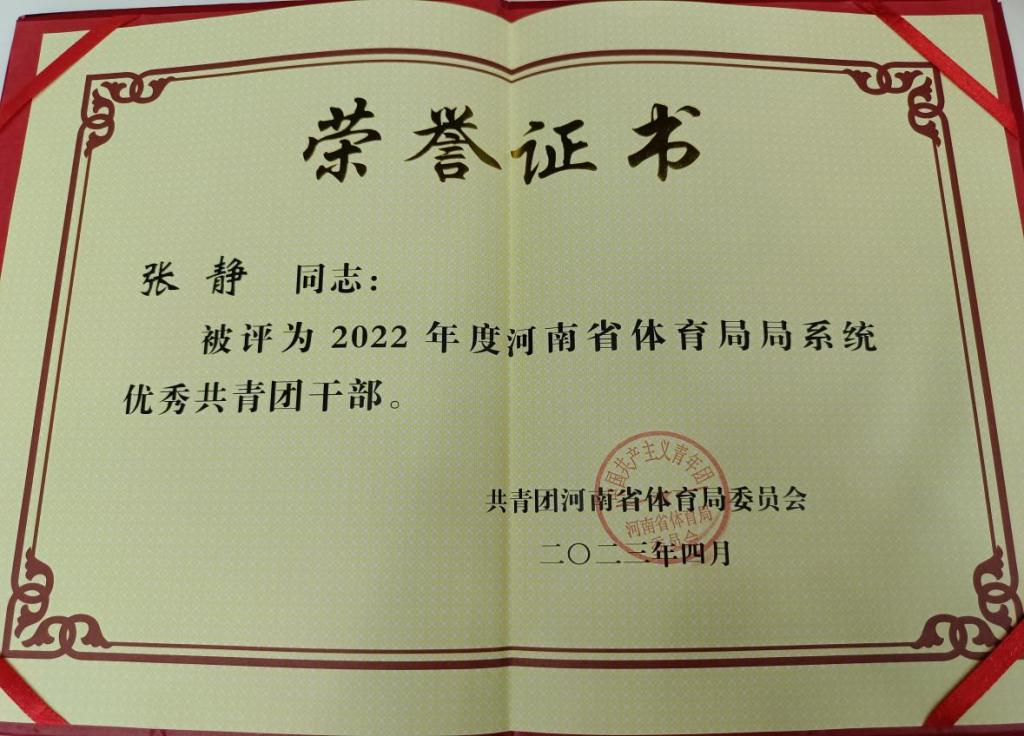 荣誉证书
张静 同志：
被评为 2022 年度河南省体育局局系统
优秀共青团干部。
共青团河南省体育局委员会
二〇二三年四月
中国共产主义青年团
河南省体育局
委员会